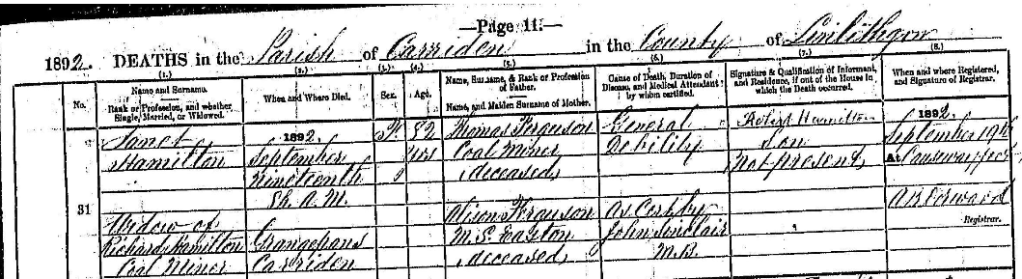 —Page 11.—
1892. DEATHS in the Parish of Carriden in the County of Linlithgow
(1.) (2.) (3.) (4.) (5.) (6.) (7.) (8.)
No. Name and Surname. Rank or Profession, and whether Single, Married, or Widowed. When and Where Died. Sex. Age. Name, Surname, & Rank or Profession of Father. Name, and Maiden Surname of Mother. Cause of Death, Duration of Disease, and Medical Attendant by whom certified. Signature & Qualification of Informant, and Residence, if out of the House in which the Death occurred. When and where Registered, and Signature of Registrar.
Janet 1892, F. 82 Thomas Ferguson General Robert Hamilton 1892,
Hamilton September yrs Coal Miner Debility Son September
Nineteenth (deceased) (Not present) At
31 5h. A.M.
Widow of Alison Ferguson As Cert by Registrar.
Richard Hamilton Grangepans M.S. Easton John Sinclair
Coal Miner Carriden (deceased) M.B.